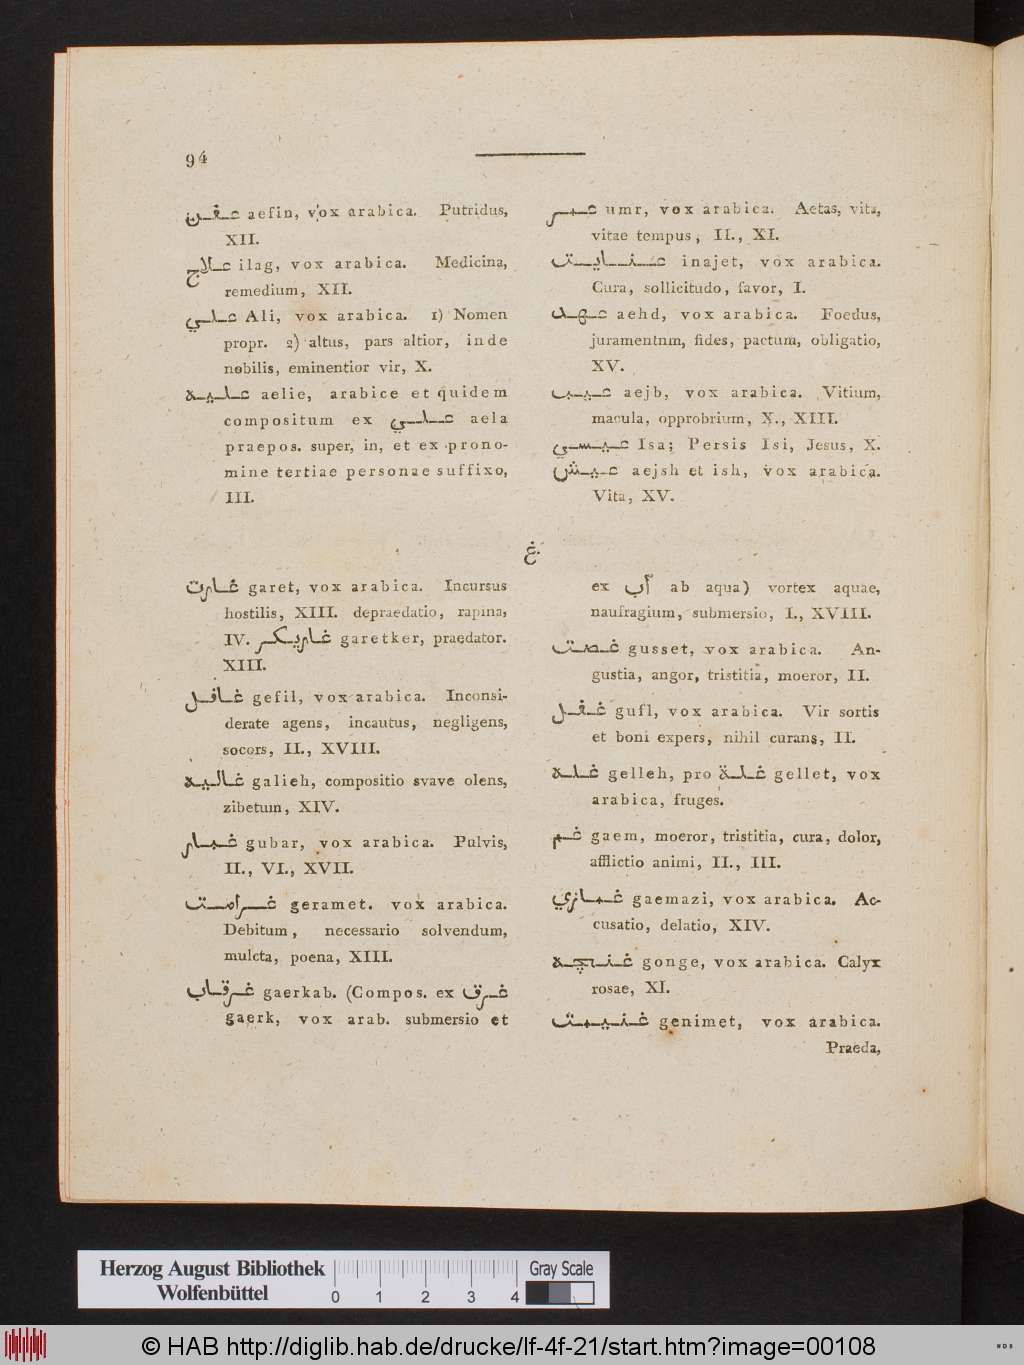 94
عفن aefin, vox arabica. Putridus,
XII.
علاج ilag, vox arabica. Medicina,
remedium, XII.
علي Ali, vox arabica. 1) Nomen
propr. 2) altus, pars altior, inde
nobilis, eminentior vir, X.
عليه aelie, arabice et quidem
compositum ex علي aela
praepos. super, in, et ex prono-
mine tertiae personae suffixo,
III.
عمر umr, vox arabica. Aetas, vita,
vitae tempus, II., XI.
عنايت inajet, vox arabica.
Cura, sollicitudo, favor, I.
عهد aehd, vox arabica. Foedus,
juramentnm, fides, pactum, obligatio,
XV.
عيب aejb, vox arabica. Vitium,
macula, opprobrium, X., XIII.
عيسي Isa; Persis Isi, Jesus, X.
عيش aejsh et ish, vox arabica.
Vita, XV.
غ.
غارت garet, vox arabica. Incursus
hostilis, XIII. depraedatio, rapina,
IV. غارتكر garetker, praedator.
XIII.
غافل gefil, vox arabica. Inconsi-
derate agens, incautus, negligens,
socors, II., XVIII.
غاليه galieh, compositio svave olens,
zibetum, XIV.
غبار gubar, vox arabica. Pulvis,
II., VI., XVII.
غرامت geramet. vox arabica.
Debitum, necessario solvendum,
mulcta, poena, XIII.
غرقاب gaerkab. (Compos. ex غرق
gaerk, vox arab. submersio et
ex آب ab aqua) vortex aquae,
naufragium, submersio, I., XVIII.
غصت gusset, vox arabica. An-
gustia, angor, tristitia, moeror, II.
غفل gufl, vox arabica. Vir sortis
et boni expers, nihil curans, II.
غله gelleh, pro غلة gellet, vox
arabica, fruges.
غم gaem, moeror, tristitia, cura, dolor,
afflictio animi, II., III.
غمازي gaemazi, vox arabica. Ac-
cusatio, delatio, XIV.
غنچه gonge, vox arabica. Calyx
rosae, XI.
غنيمت genimet, vox arabica.
Praeda,
Herzog August Bibliothek
Wolfenbüttel
0 1 2 3 4
Gray Scale
© HAB http://diglib.hab.de/drucke/lf-4f-21/start.htm?image=00108